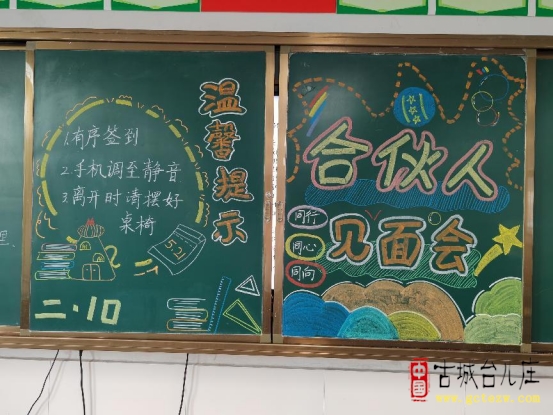 温馨提示
1.有序签到
2.手机调至静音
3.离开时请摆好
桌椅
521
二·10
合伙人
见面会
同行
同心
同向
中国
古城台儿庄